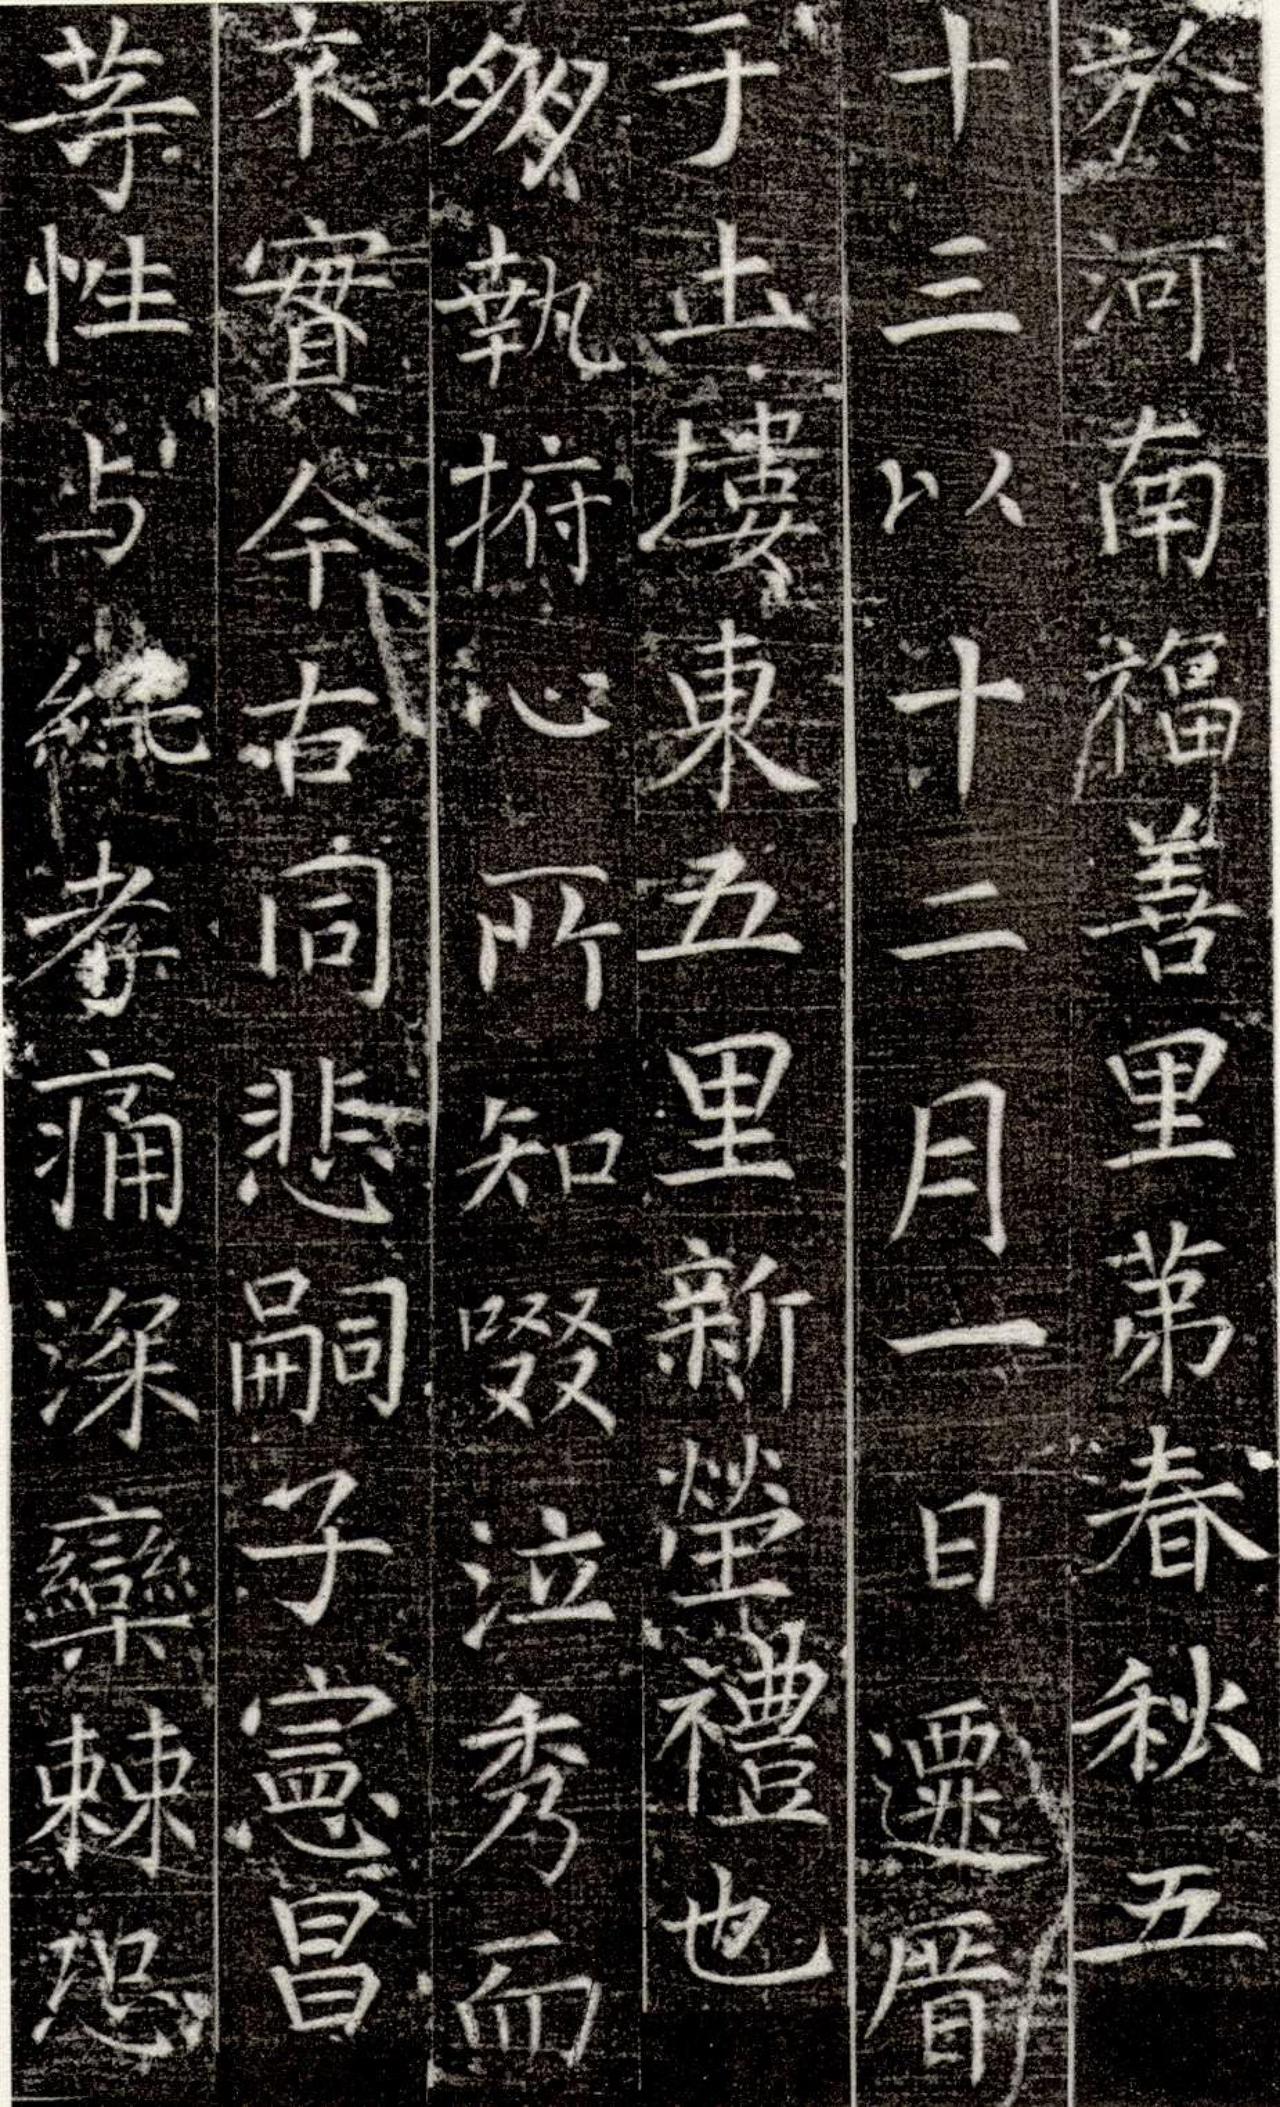 於河南福善里苐春秋五
十三以十二月一日遷厝
于土塿東五里新塋禮也
㛄執拊心所知啜泣秀而
不實今古同悲嗣子憲昌
等性与純孝痛深欒棘恐